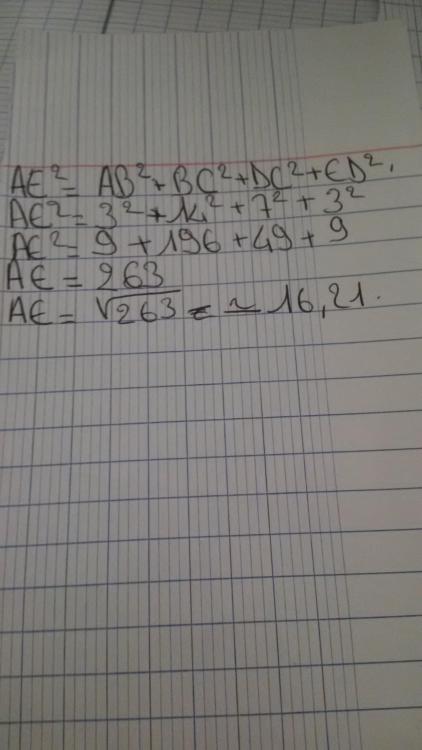 AE² = AB² + BC² + DC² + ED².
AE² = 3² + 14² + 7² + 3²
AE² = 9 + 196 + 49 + 9
AE = 263
AE = √263 = ≃ 16,21.